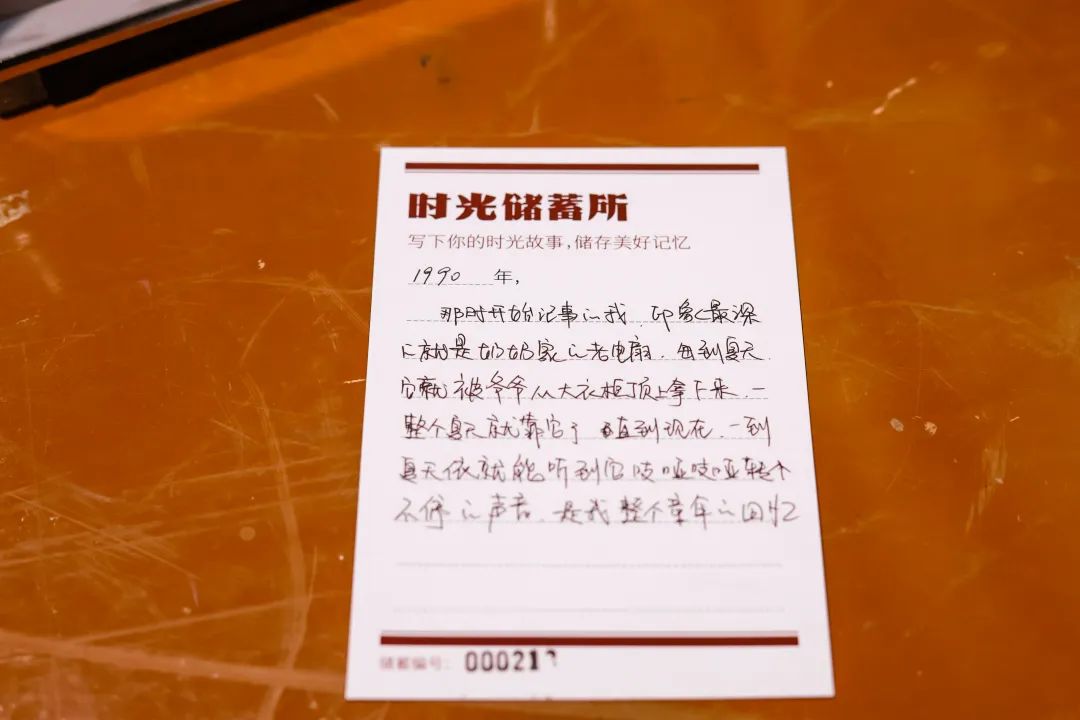 时光储蓄所
写下你的时光故事,储存美好记忆
1990 年,
那时开始记事的我,印象最深
的就是奶奶家的老电扇,每到夏天
它就被爷爷从大衣柜顶上拿下来,一
整个夏天就靠它了 直到现在,一到
夏天依就能听到它吱哑吱哑转个
不停的声音,是我整个童年的回忆
储蓄编号: 00021